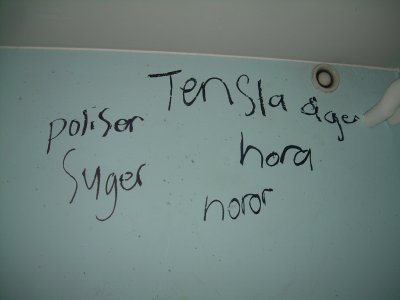 Tensla äger
poliser
hora
Syger
horor